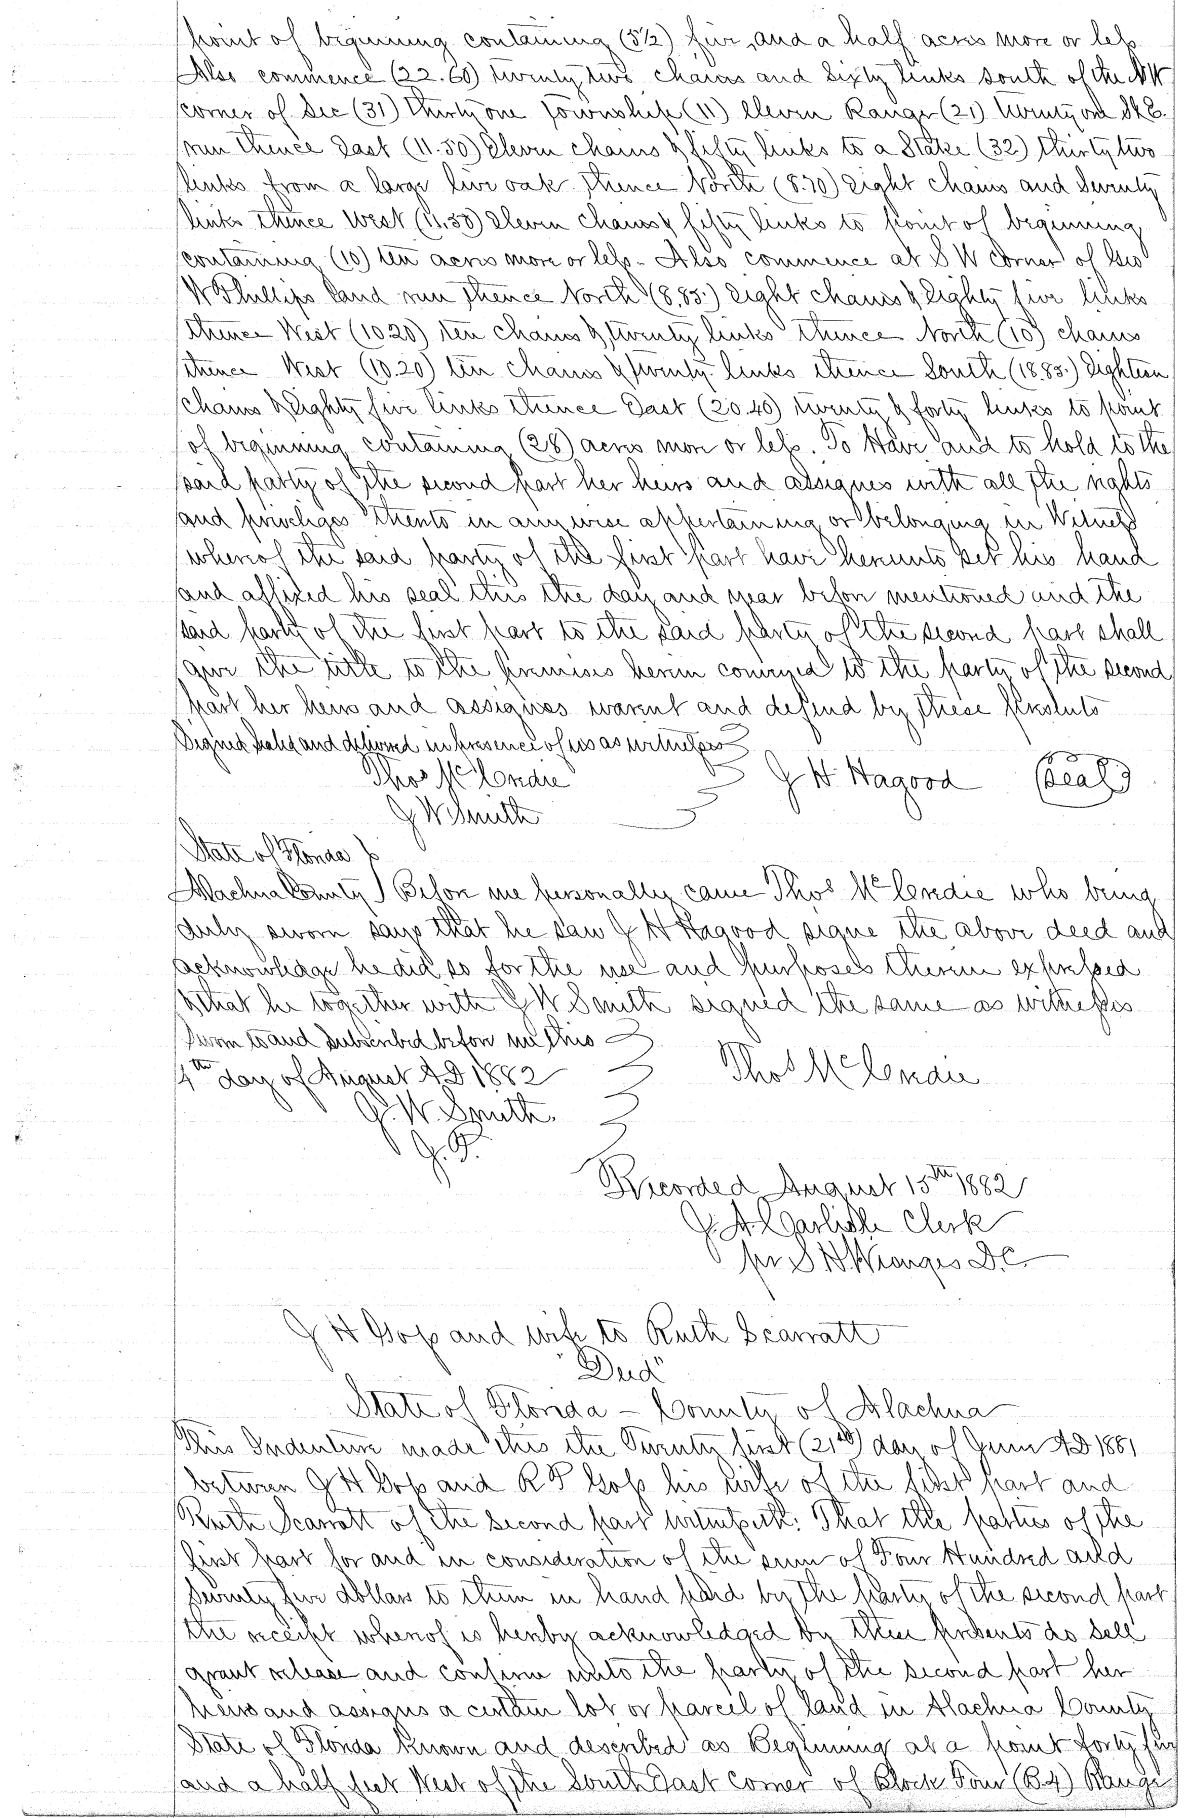 point of beginning containing (5 1/2) five and a half acres more or less
Also commence (22.60) twenty two chains and Sixty links south of the NW
corner of Sec (31) thirty one township (11) Eleven Range (21) twenty one S&E.
run thence East (11.50) Eleven chains & fifty links to a Stake (32) thirty two
links from a large live oak thence North (8.70) Eight chains and Seventy
links thence West (11.50) Eleven chains & fifty links to point of beginning
containing (10) ten acres more or less - Also commence at S W corner of Geo
W Phillips land run thence North (8.85.) Eight chains & Eighty five links
thence West (10.20) ten chains & twenty links thence North (10) chains
thence West (10.20) ten chains & twenty links thence South (18.85.) Eighteen
chains & Eighty five links thence East (20.40) twenty & forty links to point
of beginning containing (28) acres more or less. To Have and to hold to the
said party of the second part her heirs and assignes with all the rights
and priveliges thereto in any wise appertaining or belonging in Witness
whereof the said party of the first part have hereunto set his hand
and affixed his seal this the day and year before mentioned and the
said party of the first part to the said party of the second part shall
give the title to the premises herein conveyed to the party of the second
part her heirs and assignes warent and defend by these presents
Signed Sealed and delivered in presence of us as witnesses
Thos McCredie J H Hagood (Seal)
J W Smith
State of Florida
Alachua County Before me personally came Thos McCredie who being
duly sworn says that he saw J H Hagood signe the above deed and
acknowledge he did so for the use and purposes therein expressed
& that he together with J W Smith signed the same as witnesses
Sworn to and Subscribed before me this
4th day of August AD 1882 Thos McCredie
J. W. Smith.
J. P.
Recorded August 15th 1882
J. A. Carlisle Clerk
pr S H Wienges D.C.
J H Goss and wife to Ruth Scarratt
"Deed"
State of Florida - County of Alachua
This Indenture made this the Twenty first (21st) day of June AD 1881
between J H Goss and R P Goss his wife of the first part and
Ruth Scarratt of the second part witnesseth: That the parties of the
first part for and in consideration of the sum of Four Hundred and
Seventy five dollars to them in hand paid by the party of the second part
the receipt whereof is hereby acknowledged by these presents do sell
grant release and confirm unto the party of the second part her
heirs and assigns a certain lot or parcel of land in Alachua County
State of Florida known and described as Beginning at a point forty five
and a half feet West of the South East corner of Block Four (B.4) Range